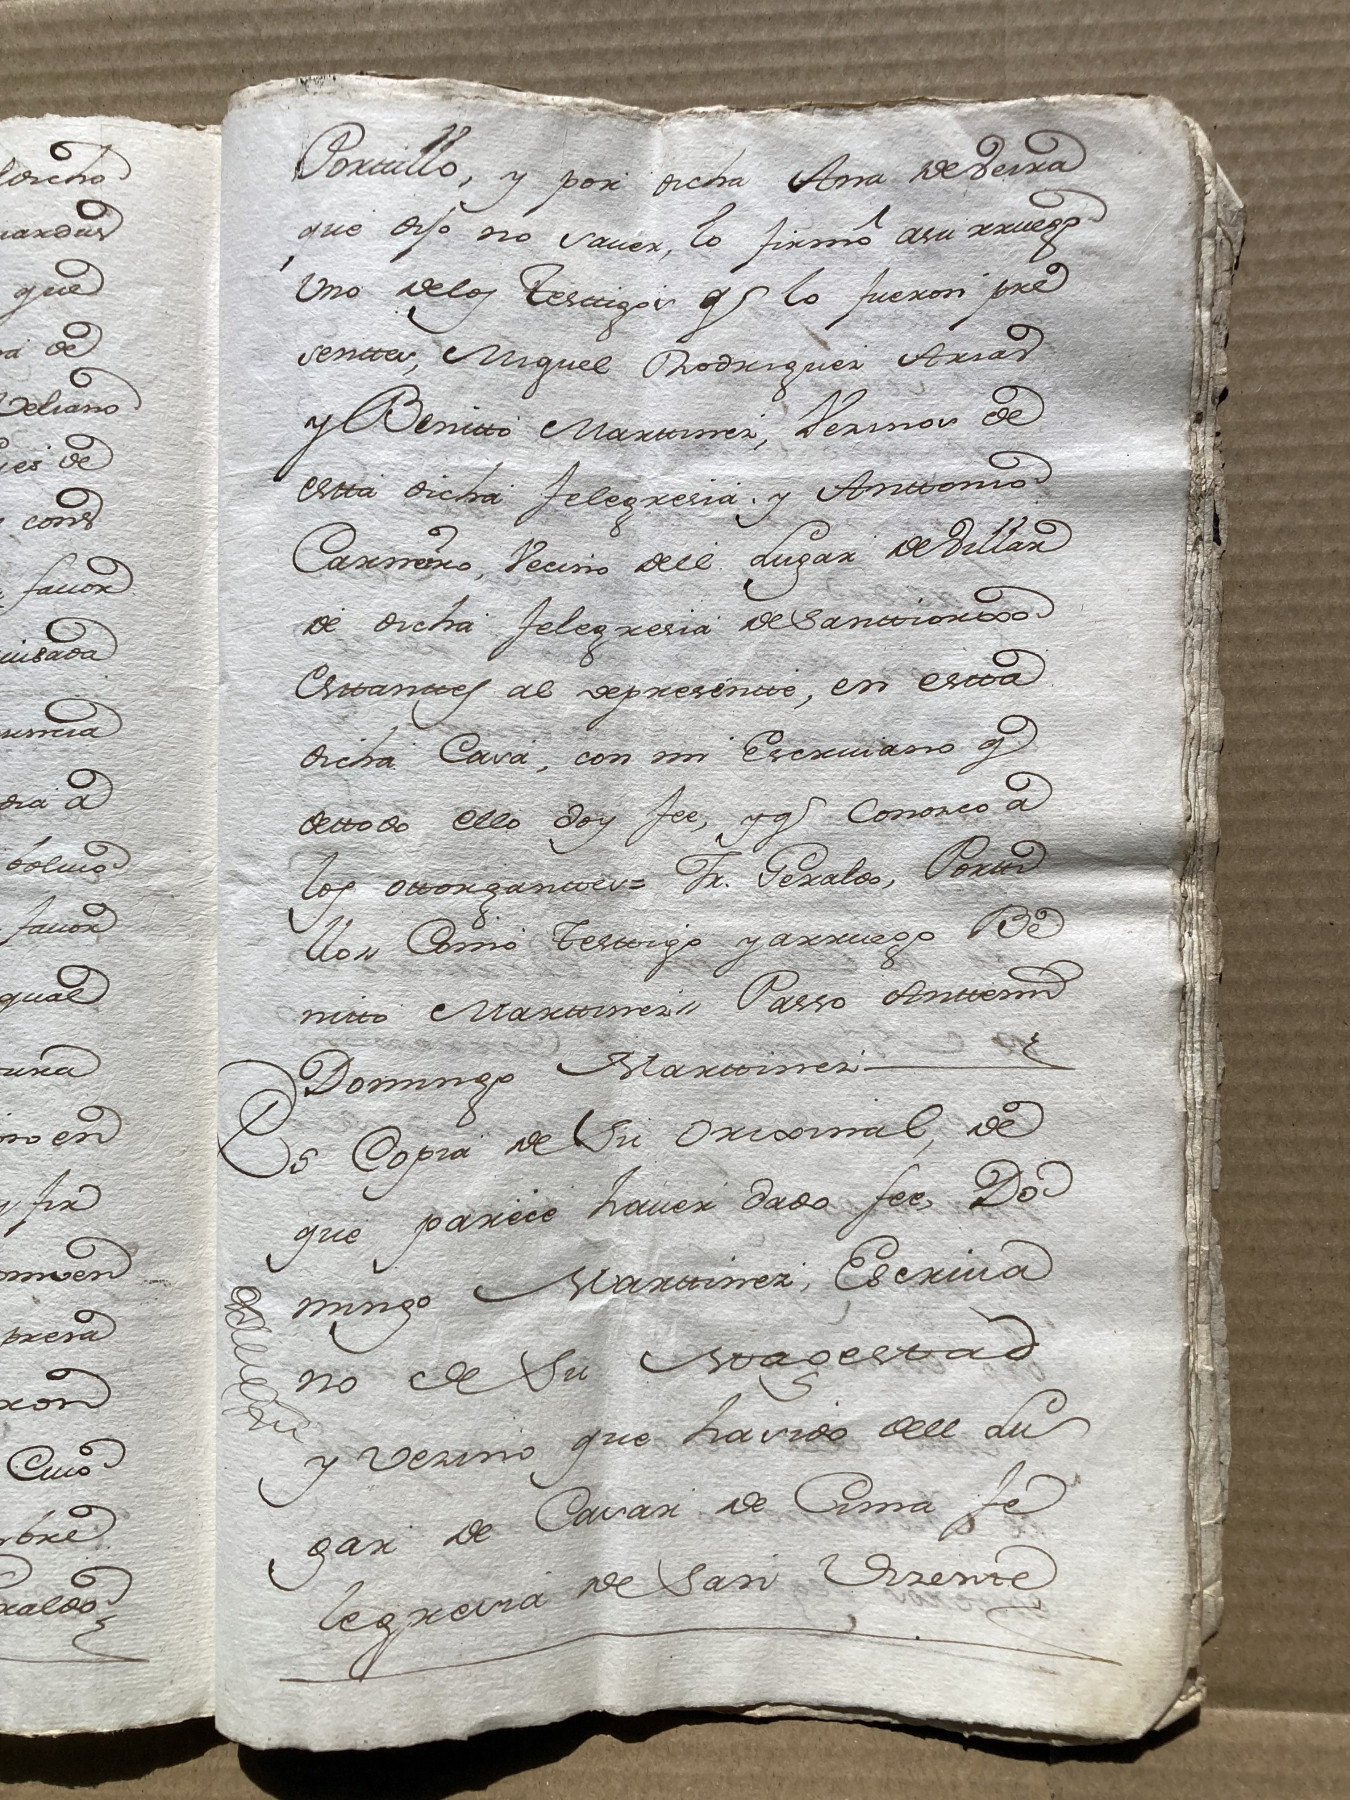 dicho
que
de
Veliano
de
favor
dia a
favor
qual
en
Cuio
Portillo, y por dicha Ana de Veira
que dijo no saver, lo firmó asu rruego
Uno delos testtigos q.e lo fueron pre
senttes, Miguel Rodriguez Arias
y Benitto Marttinez, Vezinos de
estta dicha felegresia. y Anttonio
Carnero, Vecino dell Lugar de Villar
de dicha felegresia de Santtiorxo
Esttanttes al depresentte, en estta
dicha Casa, con mi Escruiano q.e
dettodo ello doy fee, yq.e Conozco a
los ottorganttes= Fr. Peraldo, Porti
llo,, Como testtigo yarruego Be
nitto Marttinez,, Passo Anttemi
Domingo Marttinez
Es Copia de Su Orixinal, de
que parece haver dado fee, Do
mingo Marttinez, Escriua
no de Su Magesttad
y Vezino que ha sido dell Lu
gar de Casar de Cima fe
legresia de San Vizente